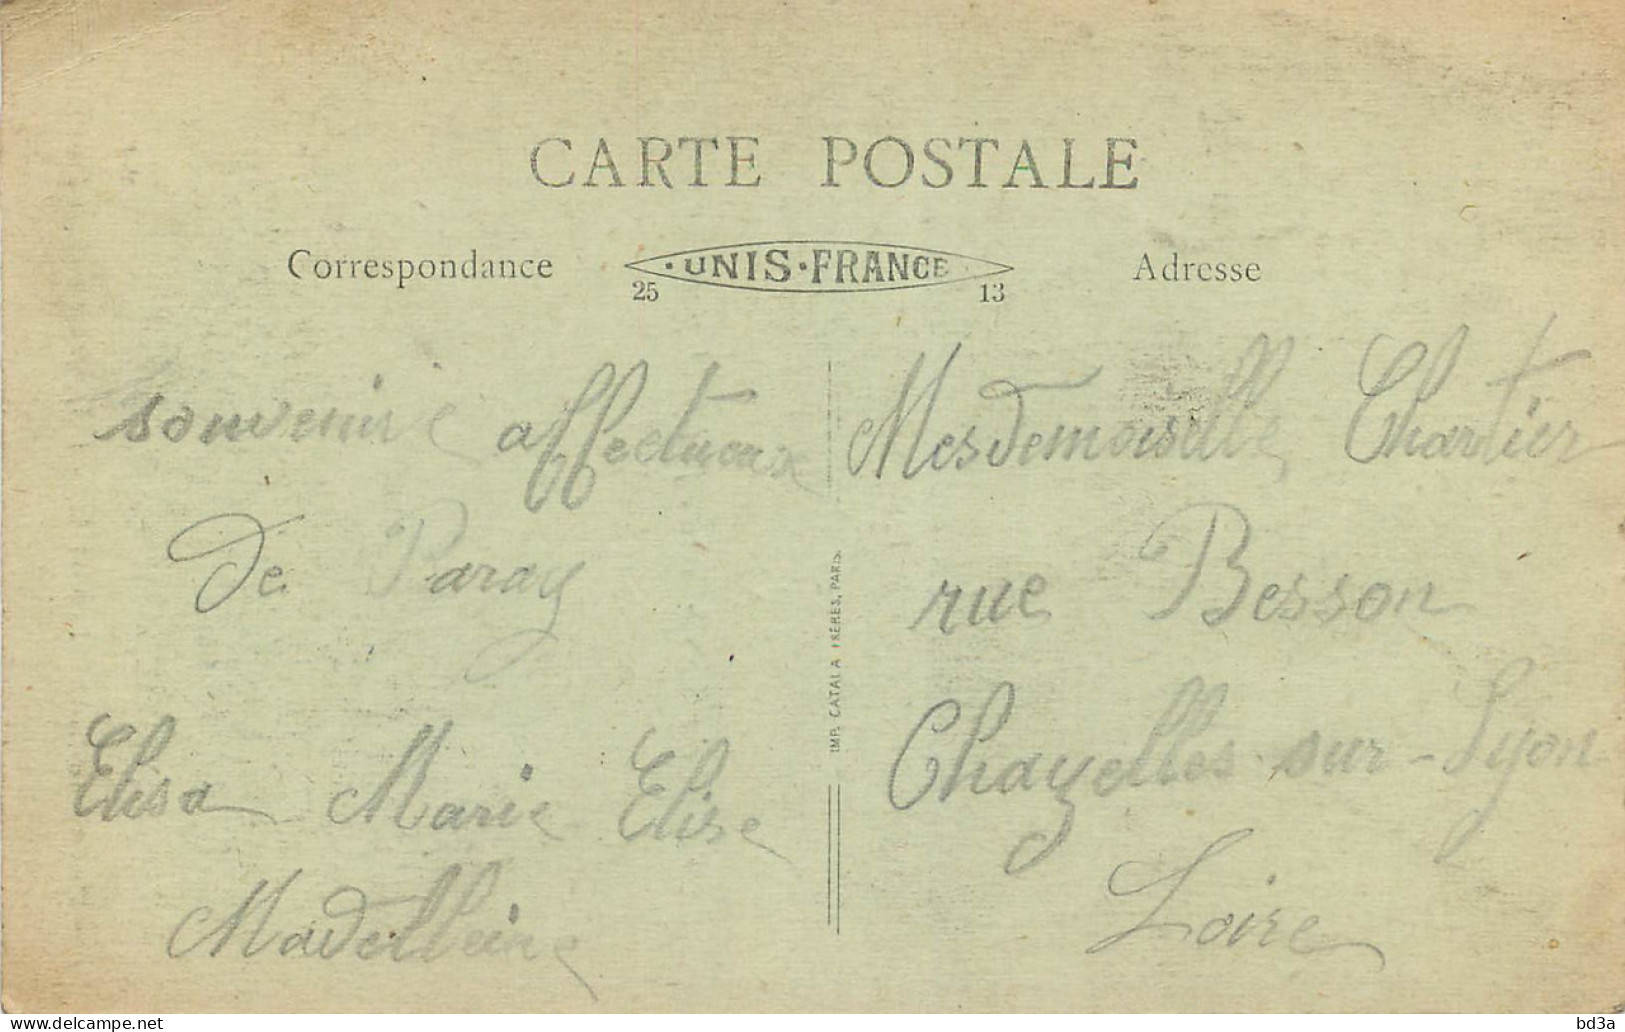 CARTE POSTALE
Correspondance
UNIS-FRANCE
25 13
Adresse
souvenire affectueux
de Paray
Elisa Marie Elise
Madelleine
IMP. CATALA FRÈRES, PARIS
Mesdemoiselle Chartier
rue Besson
Chazelles sur-Lyon
Loire
delcampe.net
bd3a